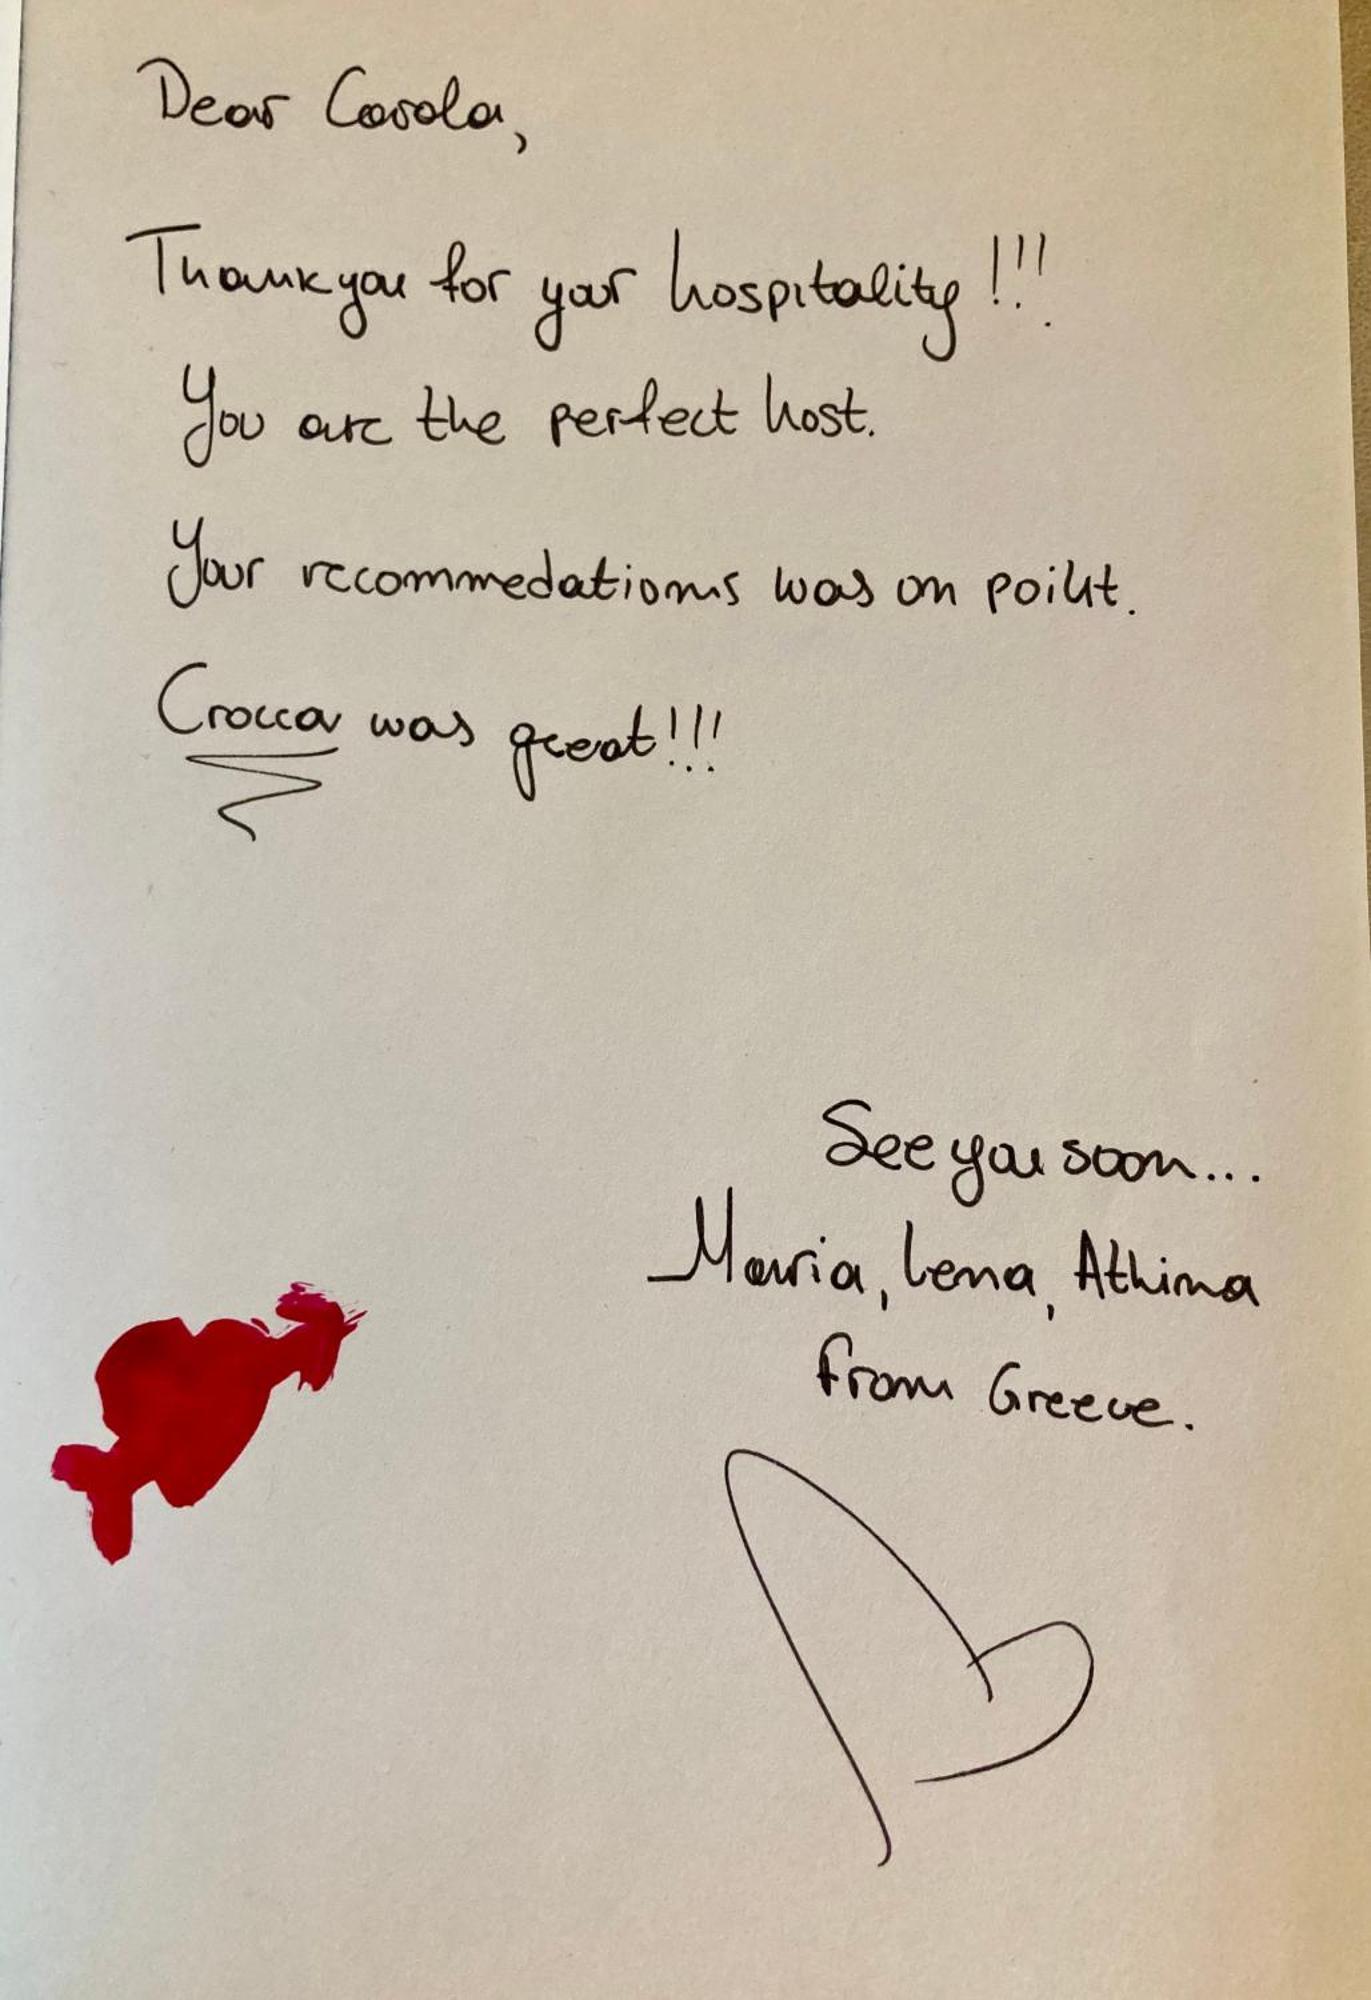 Dear Carola,
Thank you for your hospitality!!!
You are the perfect host.
Your recommedations was on point.
Crocca was great!!!
See you soon...
Maria, Lena, Athina
from Greece.